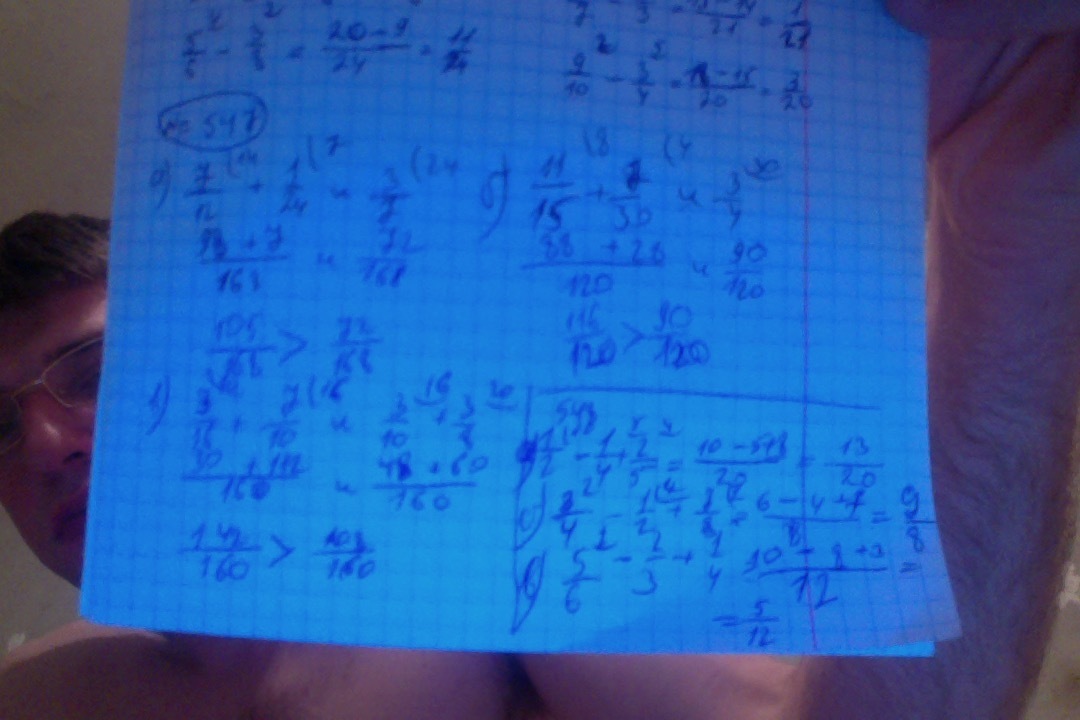 5/6 - 3/8 = 20-9/24 = 11/24
= 1/21
9/10 - 3/4 = 18-15/20 = 3/20
№ 547
а) 7/12 (14 + 1/24 (7 и 3/7 (24
98+7/168 и 72/168
105/168 > 72/168
б) 11/15 (8 + 7/30 (4 и 3/4 30
88+28/120 и 90/120
116/120 > 90/120
в) 3/16 + 7/10 (16 и 3/10 16 + 3/8 20
30+112/160 и 48+60/160
142/160 > 108/160
548
1/2 - 1/4 + 2/5 = 10-5+8/20 = 13/20
3/4 - 1/2 + 7/8 = 6-4+7/8 = 9/8
в) 5/6 - 2/3 + 1/4 10-8+3/12 =
= 5/12